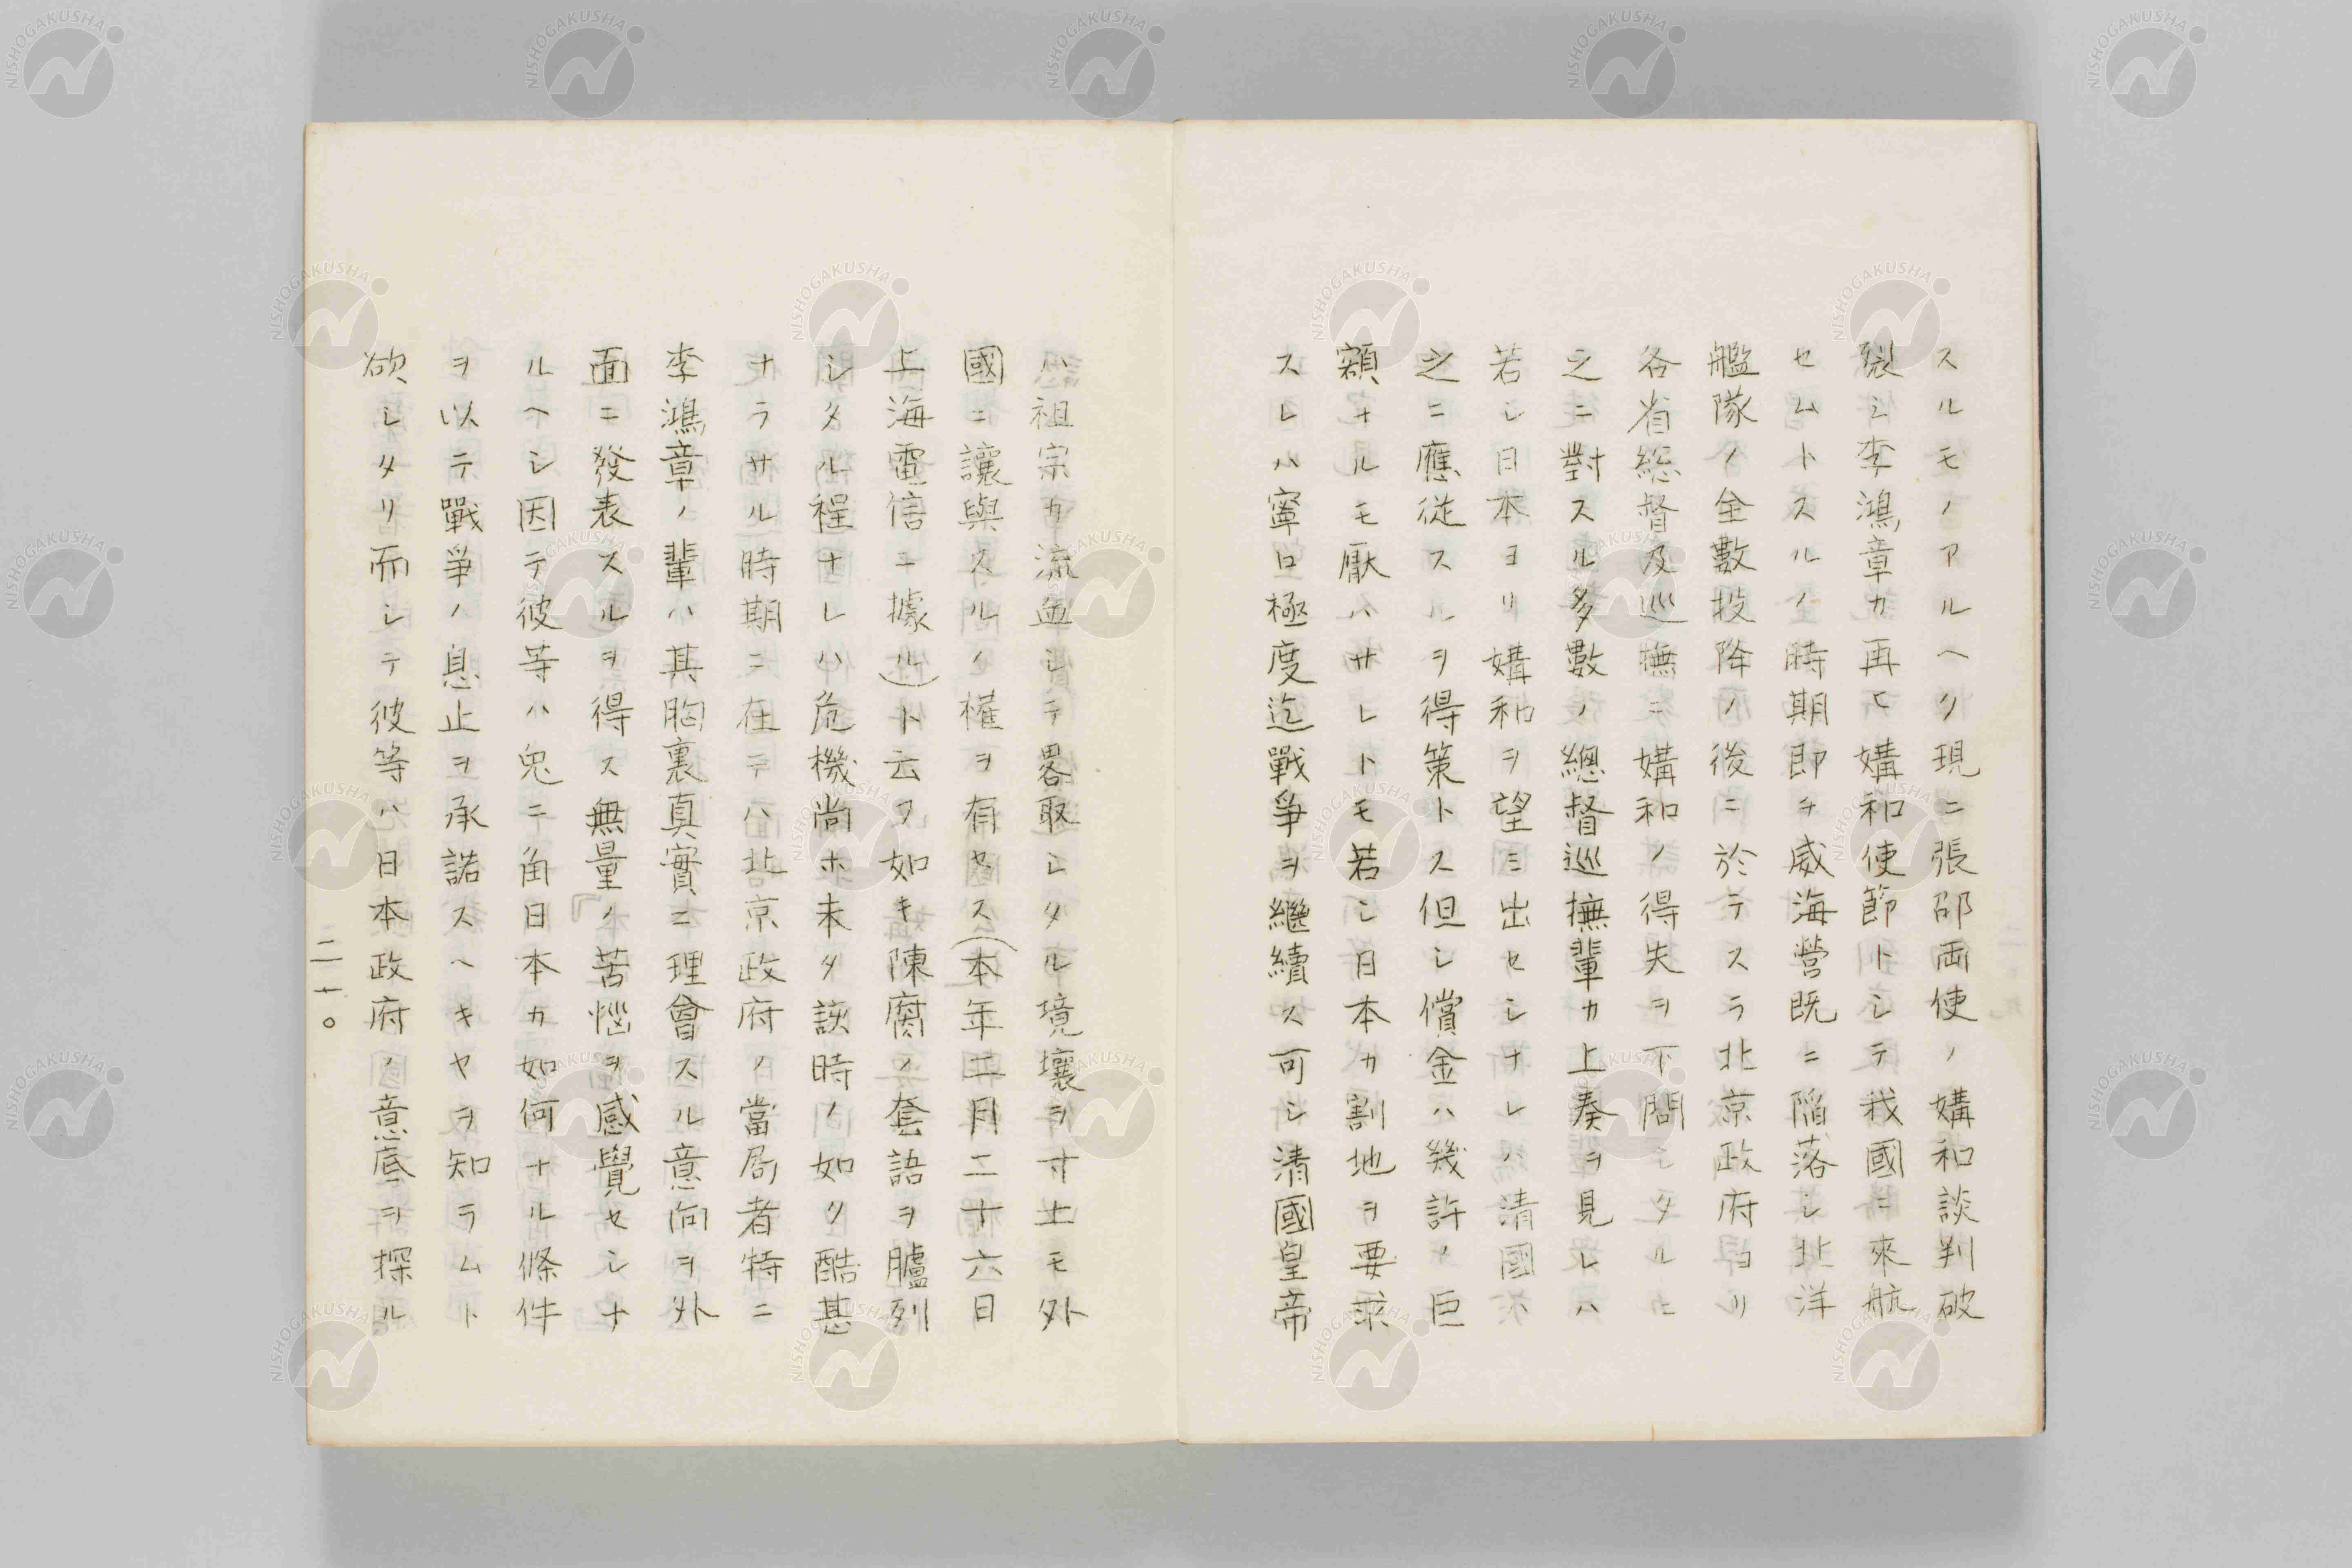 スルモノアルヘク現ニ張邵両使ノ媾和談判破
裂シ李鴻章カ再ヒ媾和使節トシテ我國ニ來航
セムトスルノ時期即チ威海營既ニ陥落シ北洋
艦隊ノ全數投降ノ後ニ於テスラ北京政府ヨリ
各省総督及巡撫ニ媾和ノ得失ヲ下問シタルニ
之ニ對スル多數ノ總督巡撫輩カ上奏ヲ見レハ
若シ日本ヨリ媾和ヲ望ミ出セシナレハ清國ハ
之ニ應従スルヲ得策トス但シ償金ハ幾許ノ巨
額ナルモ厭ハサレトモ若シ日本カ割地ヲ要求
スレハ寧ロ極度迄戰爭ヲ繼續ス可シ清國皇帝
ハ祖宗カ流血シテ畧取シタル境壤ヲ寸土モ外
國ニ讓與スルノ權ヲ有セス(本年二月二十六日
上海電信ニ據ル)ト云フ如キ陳腐ノ套語ヲ臚列
シタル程ナレハ危機尚ホ未タ該時ノ如ク酷甚
ナラサル時期ニ在テハ北京政府ノ當局者特ニ
李鴻章ノ輩ハ其胸裏真實ニ理會スル意向ヲ外
面ニ發表スルヲ得ス無量ノ苦惱ヲ感覺セシナ
ルヘシ因テ彼等ハ兎ニ角日本カ如何ナル條件
ヲ以テ戰爭ノ息止ヲ承諾スヘキヤヲ知ラムト
欲シタリ而シテ彼等ハ日本政府ノ意底ヲ探ル
二十〇
NISHOGAKUSHA